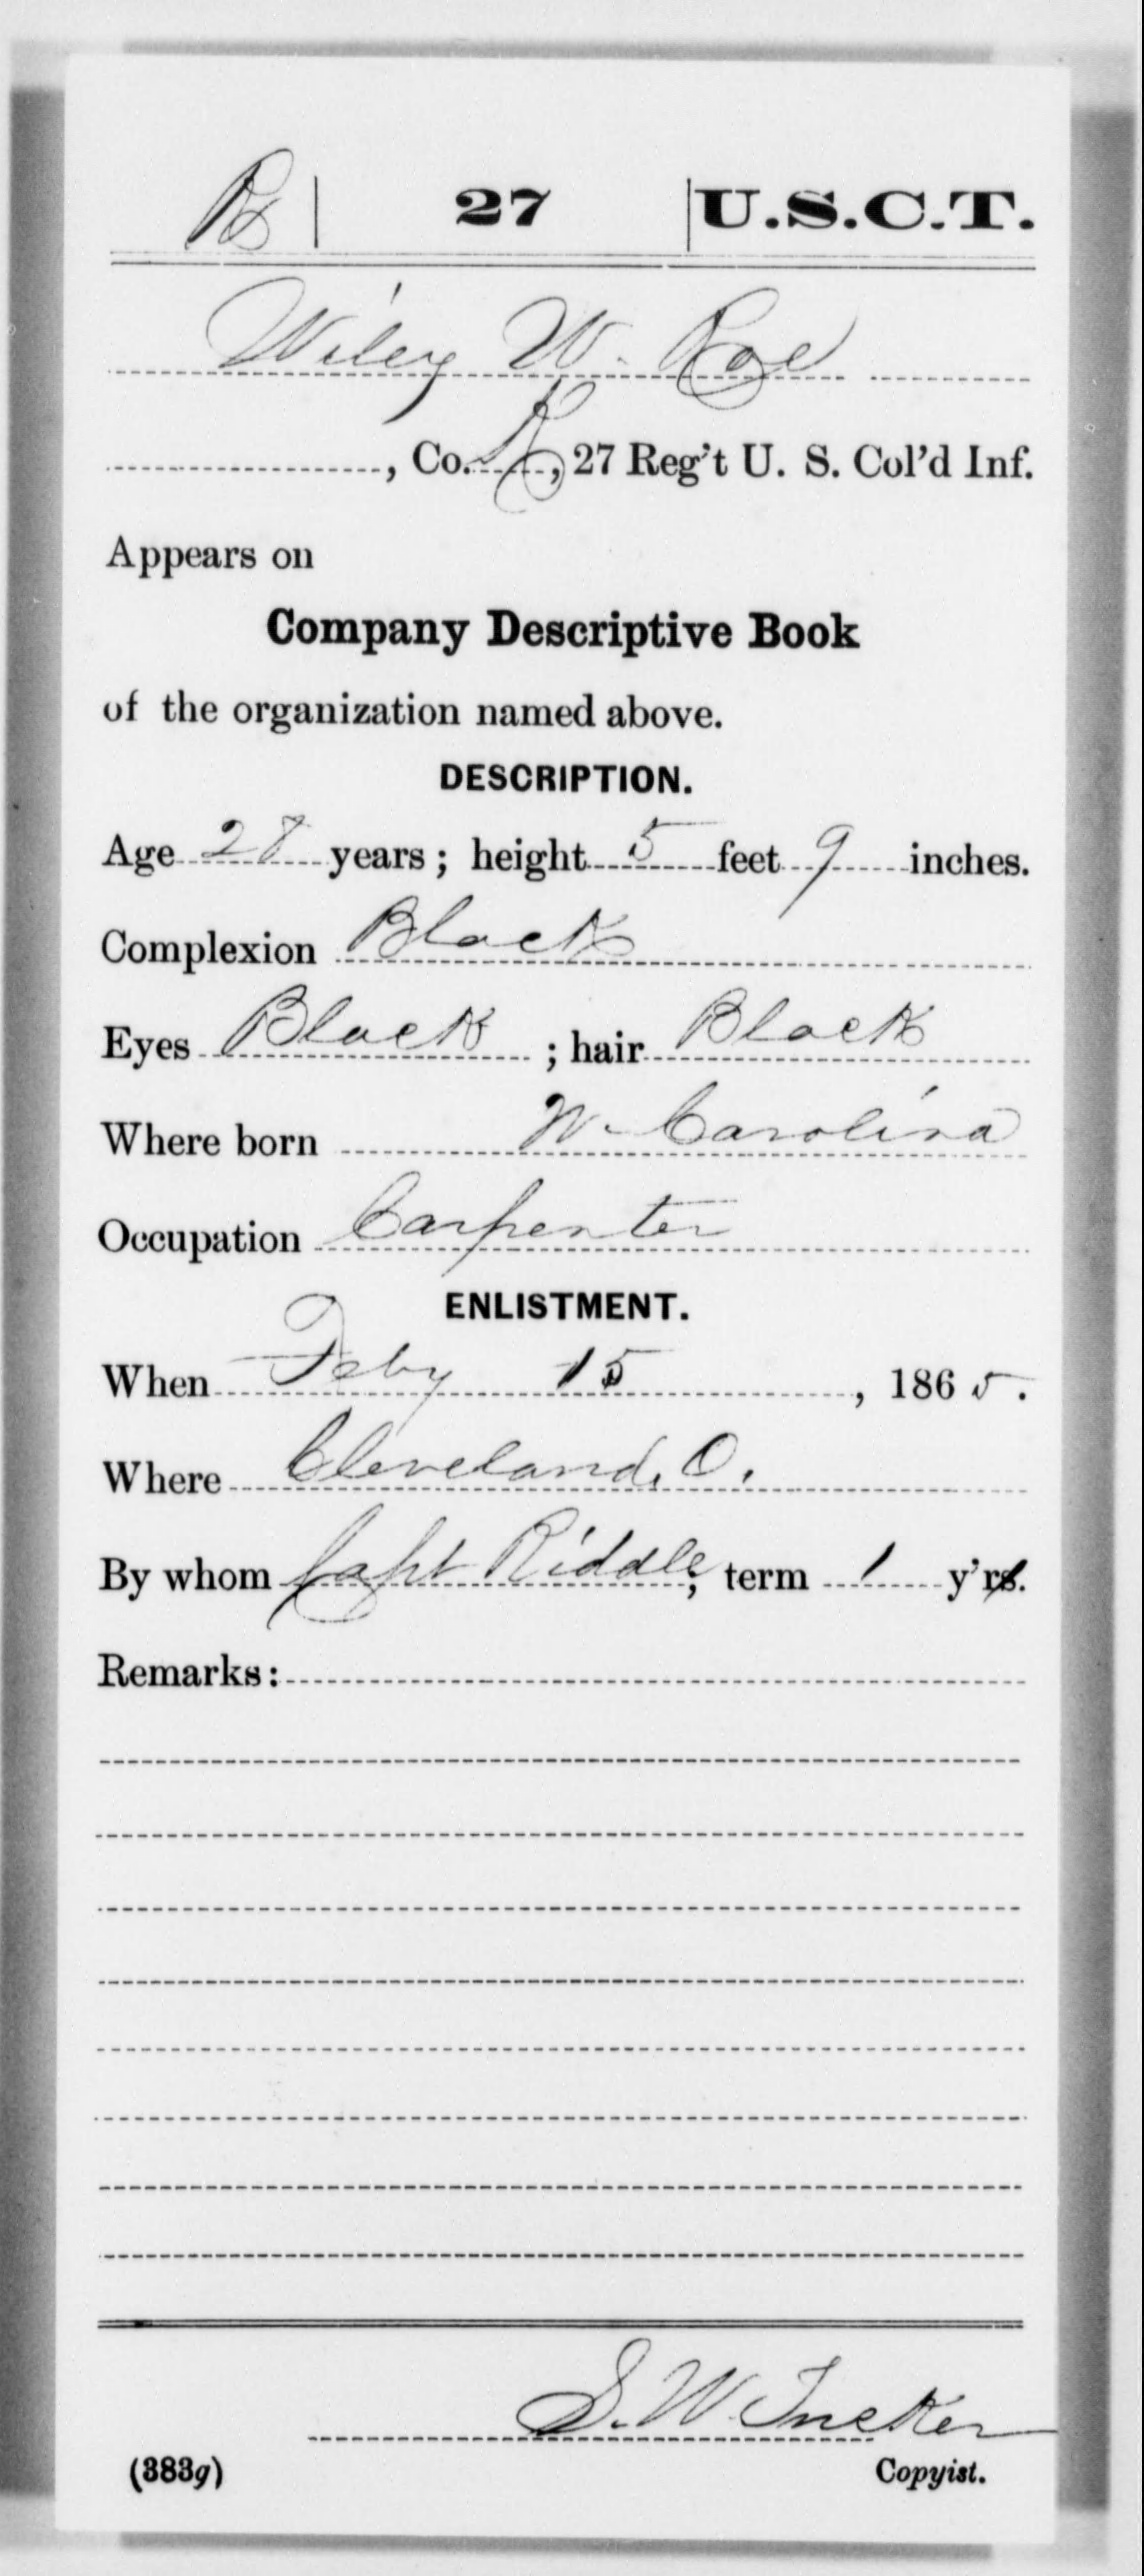 R | 27 | U.S.C.T.
Wiley W. Roe
, Co. K, 27 Reg't U. S. Col'd Inf.
Appears on
Company Descriptive Book
of the organization named above.
DESCRIPTION.
Age 28 years; height 5 feet 9 inches.
Complexion Black
Eyes Black; hair Black
Where born N. Carolina
Occupation Carpenter
ENLISTMENT.
When Feby 15, 1865.
Where Cleveland, O.
By whom Capt Riddle; term 1 y'rs.
Remarks:
S. W. Tucker
(383g) Copyist.